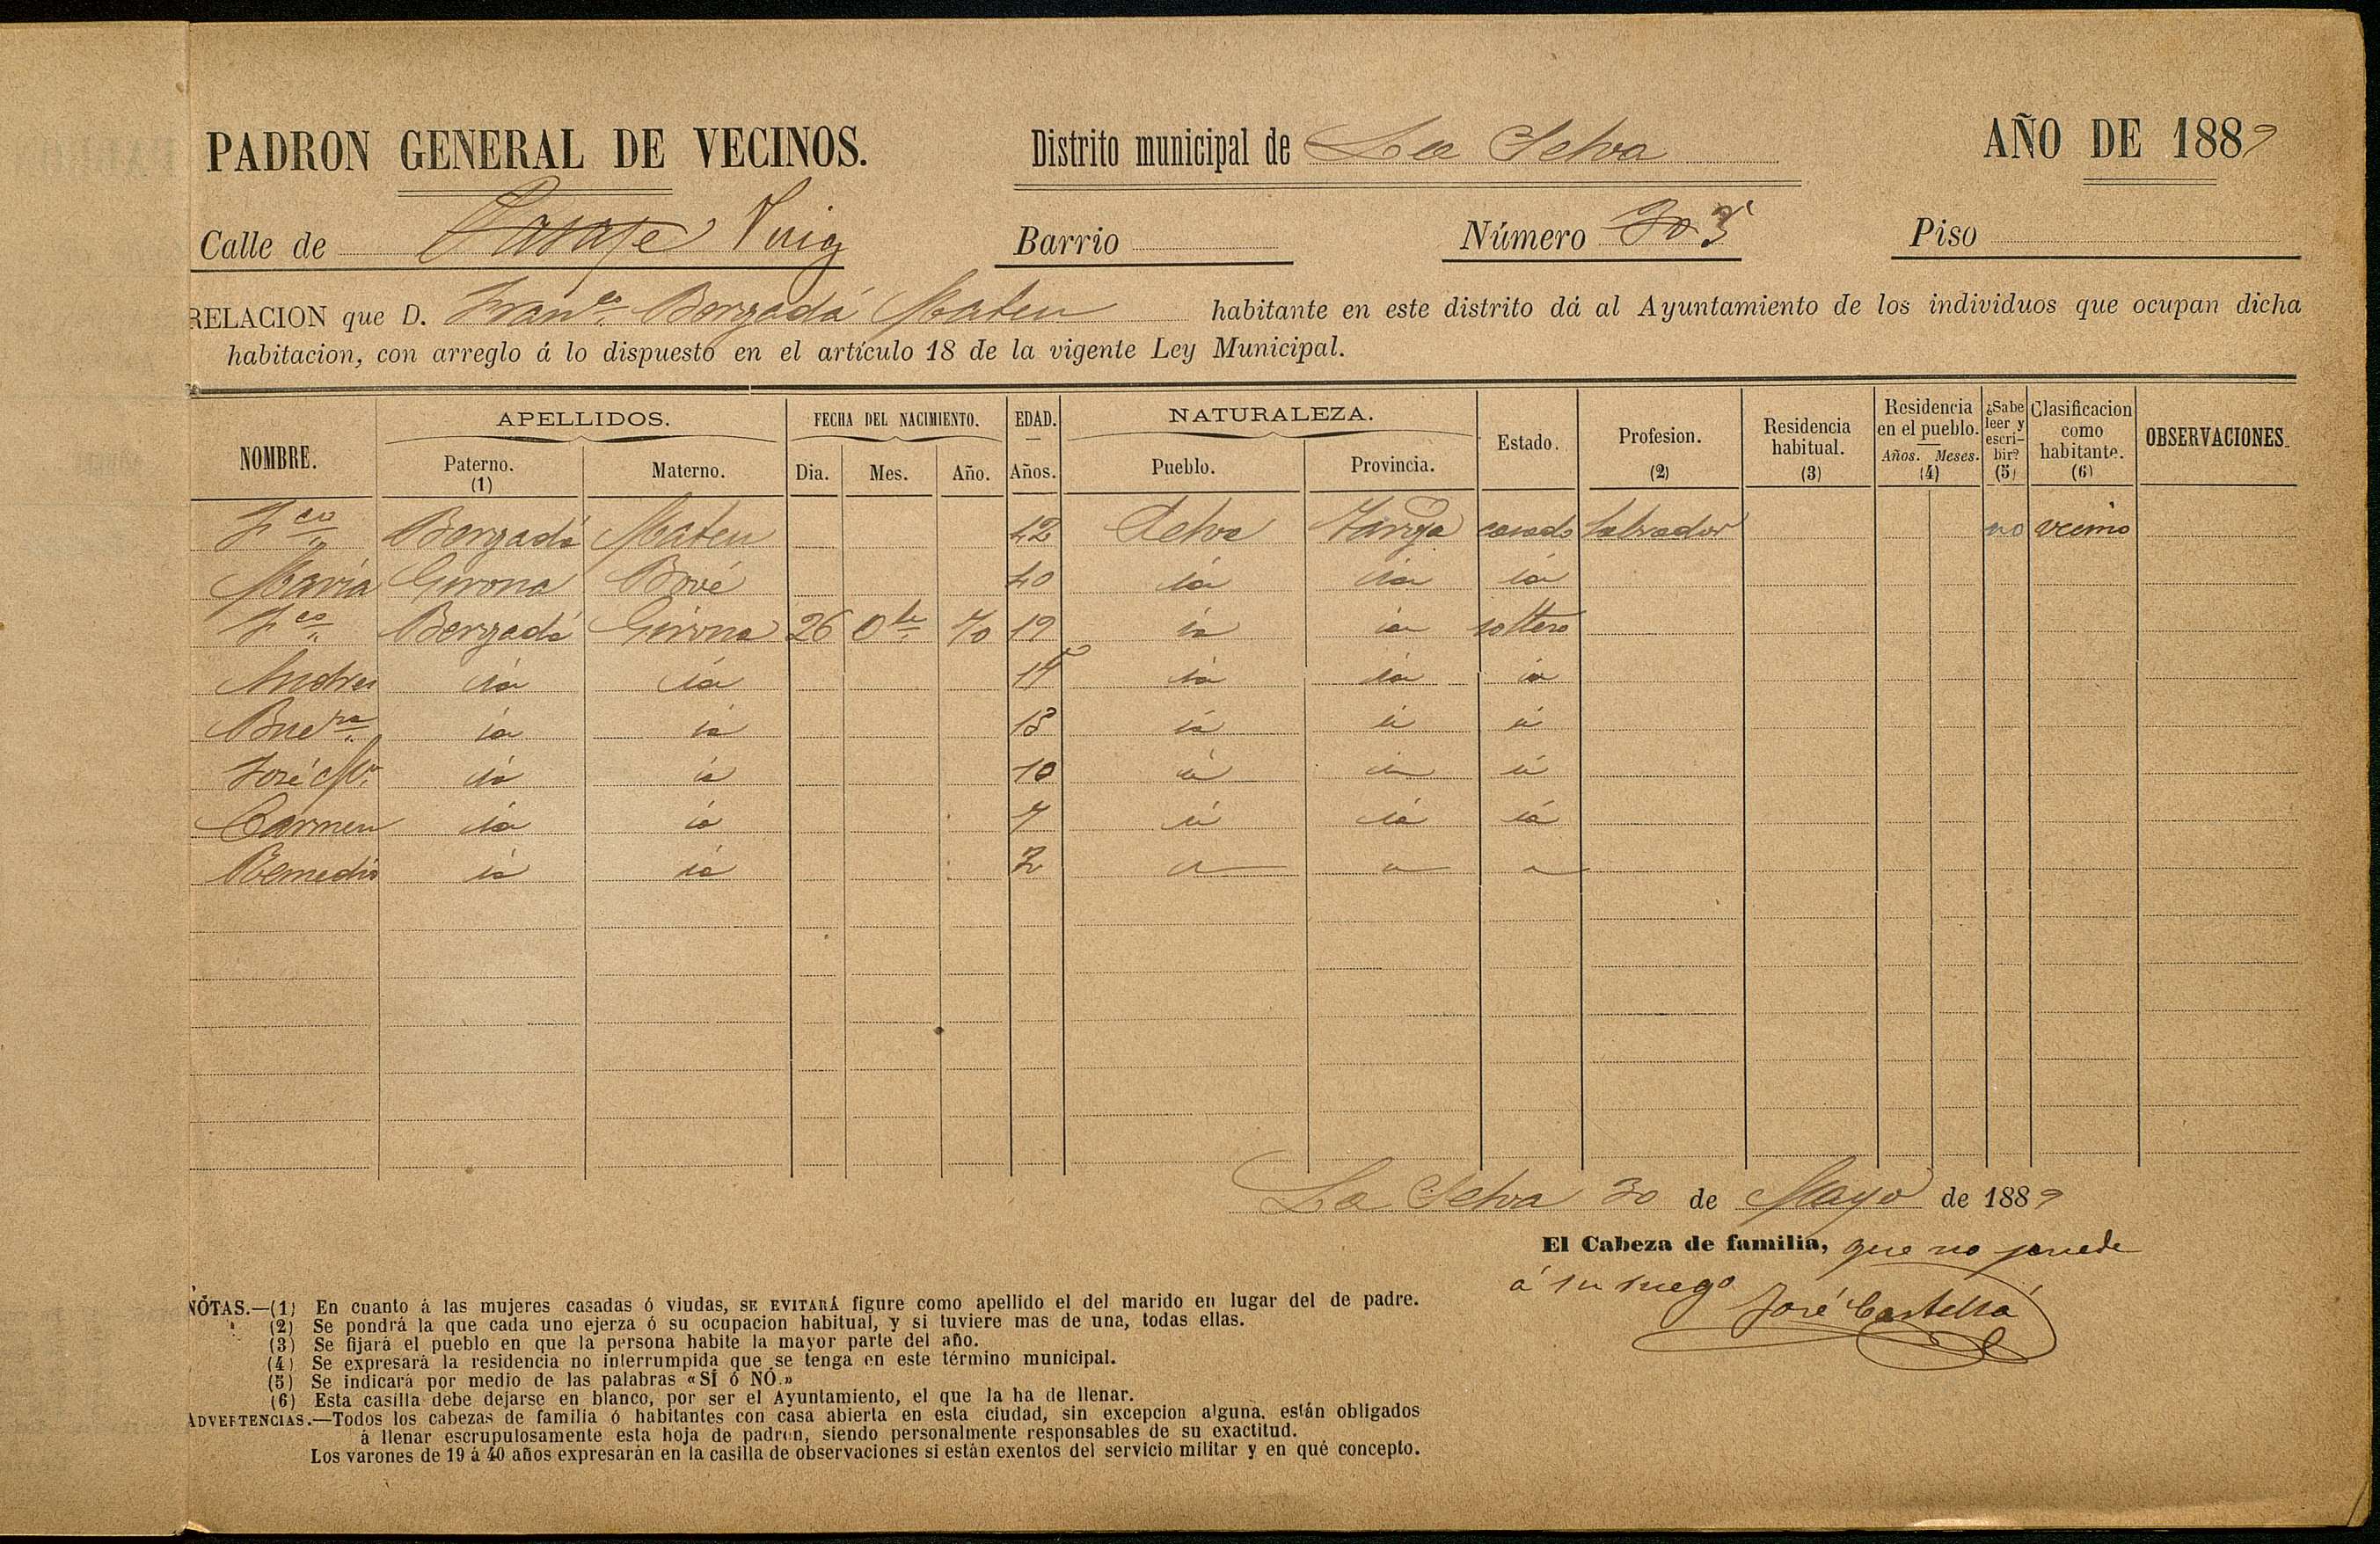 PADRON GENERAL DE VECINOS. Distrito municipal de La Selva AÑO DE 1889
Calle de Pasaje Puig Barrio Número 30 3 Piso
RELACION que D. Franco. Borgadá Mateu habitante en este distrito dá al Ayuntamiento de los individuos que ocupan dicha
habitacion, con arreglo á lo dispuesto en el artículo 18 de la vigente Ley Municipal.
NOMBRE. APELLIDOS. Paterno. (1) Materno. FECHA DEL NACIMIENTO. Dia. Mes. Año. EDAD. Años. NATURALEZA. Pueblo. Provincia. Estado. Profesion. (2) Residencia habitual. (3) Residencia en el pueblo. Años. Meses. (4) ¿Sabe leer y escribir? (5) Clasificacion como habitante. (6) OBSERVACIONES.
Fco Borgadá Mateu 42 Selva casado labrador no vecino
Maria Girona Bové 40 id id id
Fco Borgadá Girona 26 Obe 70 19 id id soltero
Andres id id id id id
Buena id id 13 id id id
José Ma. id id 10 id id id
Carmen id id 7 id id id
Remedio id id 2
La Selva 30 de Mayo de 1889
El Cabeza de familia, que no puede
á su ruego
José Castellá
NOTAS.—(1) En cuanto á las mujeres casadas ó viudas, SE EVITARÁ figure como apellido el del marido en lugar del de padre.
(2) Se pondrá la que cada uno ejerza ó su ocupacion habitual, y si tuviere mas de una, todas ellas.
(3) Se fijará el pueblo en que la persona habite la mayor parte del año.
(4) Se expresará la residencia no interrumpida que se tenga en este término municipal.
(5) Se indicará por medio de las palabras «SÍ ó NÓ.»
(6) Esta casilla debe dejarse en blanco, por ser el Ayuntamiento, el que la ha de llenar.
ADVERTENCIAS.—Todos los cabezas de familia ó habitantes con casa abierta en esta ciudad, sin excepcion alguna, están obligados
á llenar escrupulosamente esta hoja de padron, siendo personalmente responsables de su exactitud.
Los varones de 19 á 40 años expresarán en la casilla de observaciones si están exentos del servicio militar y en qué concepto.